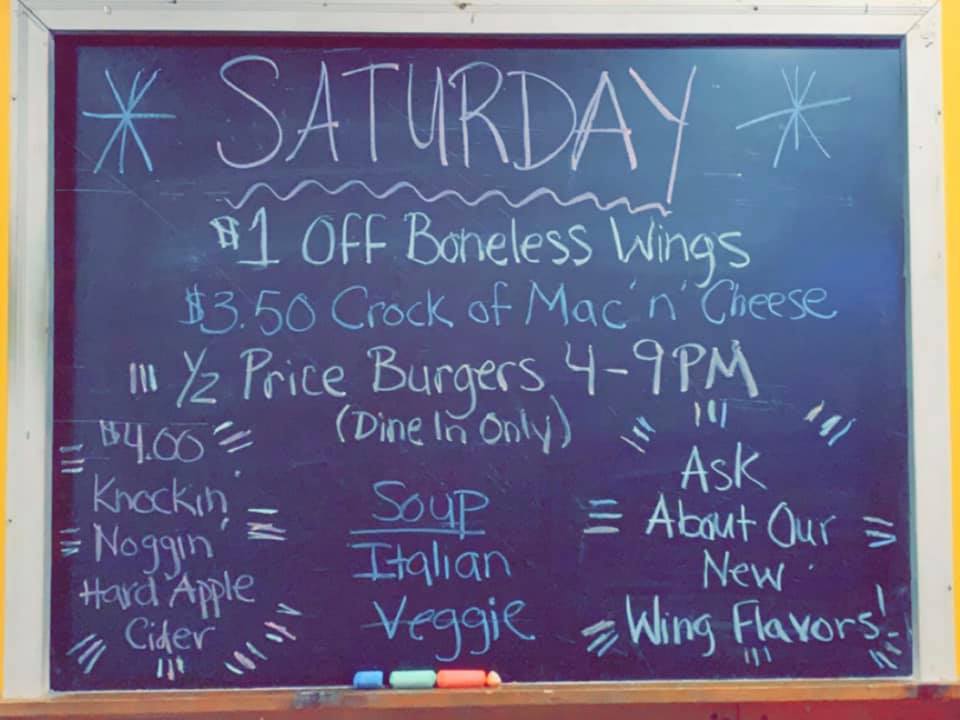 SATURDAY
$1 Off Boneless Wings
$3.50 Crock of Mac 'n' Cheese
1/2 Price Burgers 4-9PM
(Dine In Only)
$4.00
Knockin'
Noggin'
Hard Apple
Cider
Soup
Italian
Veggie
Ask
About Our
New
Wing Flavors!